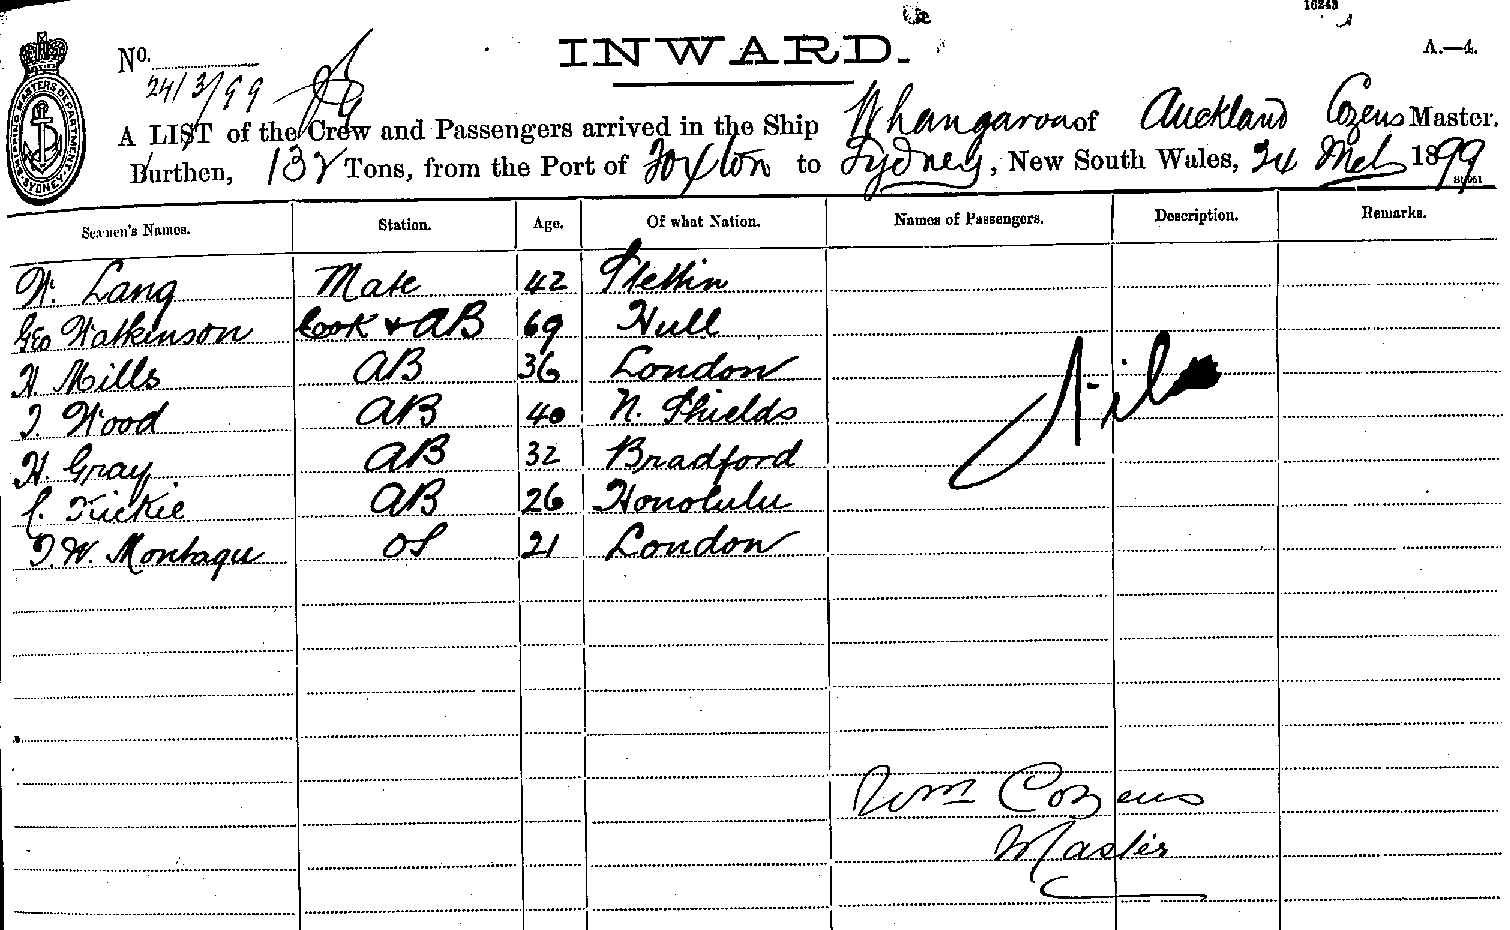 16243
INWARD.
A.—4.
No.
24/3/99
A LIST of the Crew and Passengers arrived in the Ship Whangaroa of Auckland Cozens Master,
Burthen, 132 Tons, from the Port of Foxton to Sydney, New South Wales, 24 Mch 1899
SHIPPING MASTERS DEPARTMENT SYDNEY
Seamen's Names. Station. Age. Of what Nation. Names of Passengers. Description. Remarks.
W. Lang Mate 42 Stettin
Geo Watkinson Cook & AB 69 Hull
H. Mills AB 36 London
J. Wood AB 40 N. Shields
H. Gray AB 32 Bradford
AB 26 Honolulu
J. W. Montague OS 21 London
Nil
Wm Cozens
Master